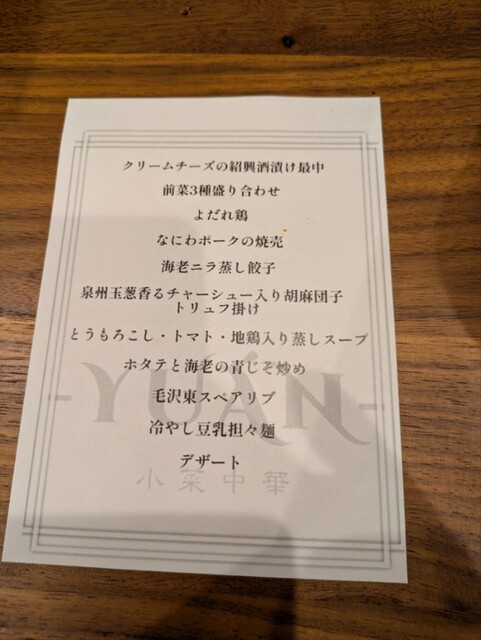 クリームチーズの紹興酒漬け最中
前菜3種盛り合わせ
よだれ鶏
なにわポークの焼売
海老ニラ蒸し餃子
泉州玉葱香るチャーシュー入り胡麻団子
トリュフ掛け
とうもろこし・トマト・地鶏入り蒸しスープ
ホタテと海老の青じそ炒め
-YUÁN-
毛沢東スペアリブ
冷やし豆乳担々麺
デザート
小菜中華